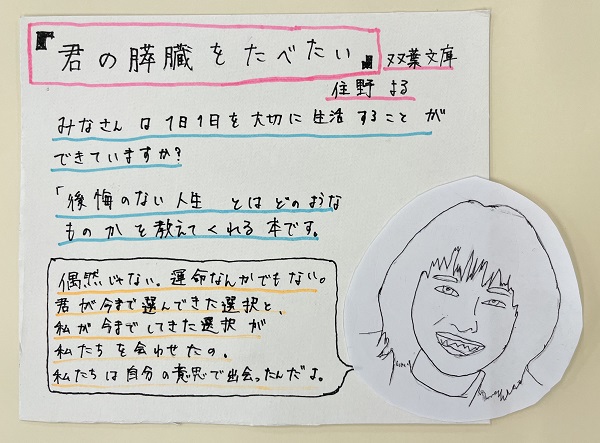 『君の膵臓をたべたい』 双葉文庫
住野 よる
みなさんは1日1日を大切に生活することが
できていますか?
「後悔のない人生 とはどのような
ものかを教えてくれる本です。
偶然じゃない。運命なんかでもない。
君が今まで選んできた選択と、
私が今までしてきた選択が
私たちを会わせたの。
私たちは自分の意思で出会ったんだよ。